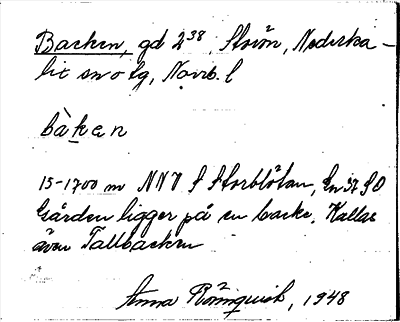 Backen, gd 2³⁸, Storön, Nederka-
lix sn o tg, Norrb. l
bàken
15-1700 m NNV f Storblötan, En 37 SO
Gården ligger på en backe. Kallas
även Tallbacken
Anna Rönnquist, 1948